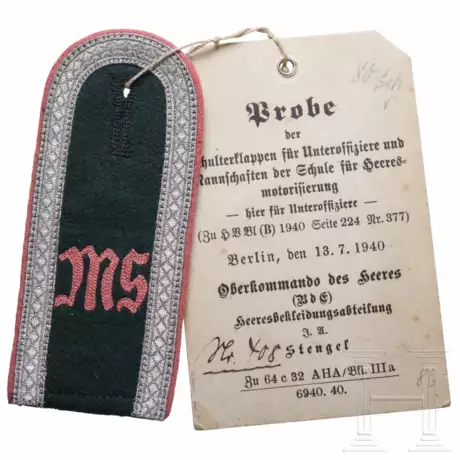 MS
Probe
der
chulterklappen für Unteroffiziere und
Mannschaften der Schule für Heeres-
motorisierung
— hier für Unteroffiziere —
(Zu H V Bl (B) 1940 Seite 224 Nr. 377)
Berlin, den 13. 7. 1940
Oberkommando des Heeres
(B d E)
Heeresbekleidungsabteilung
J. A.
Nr. 408 Stengel
Zu 64 c 32 AHA/Bkl. IIIa
6940. 40.